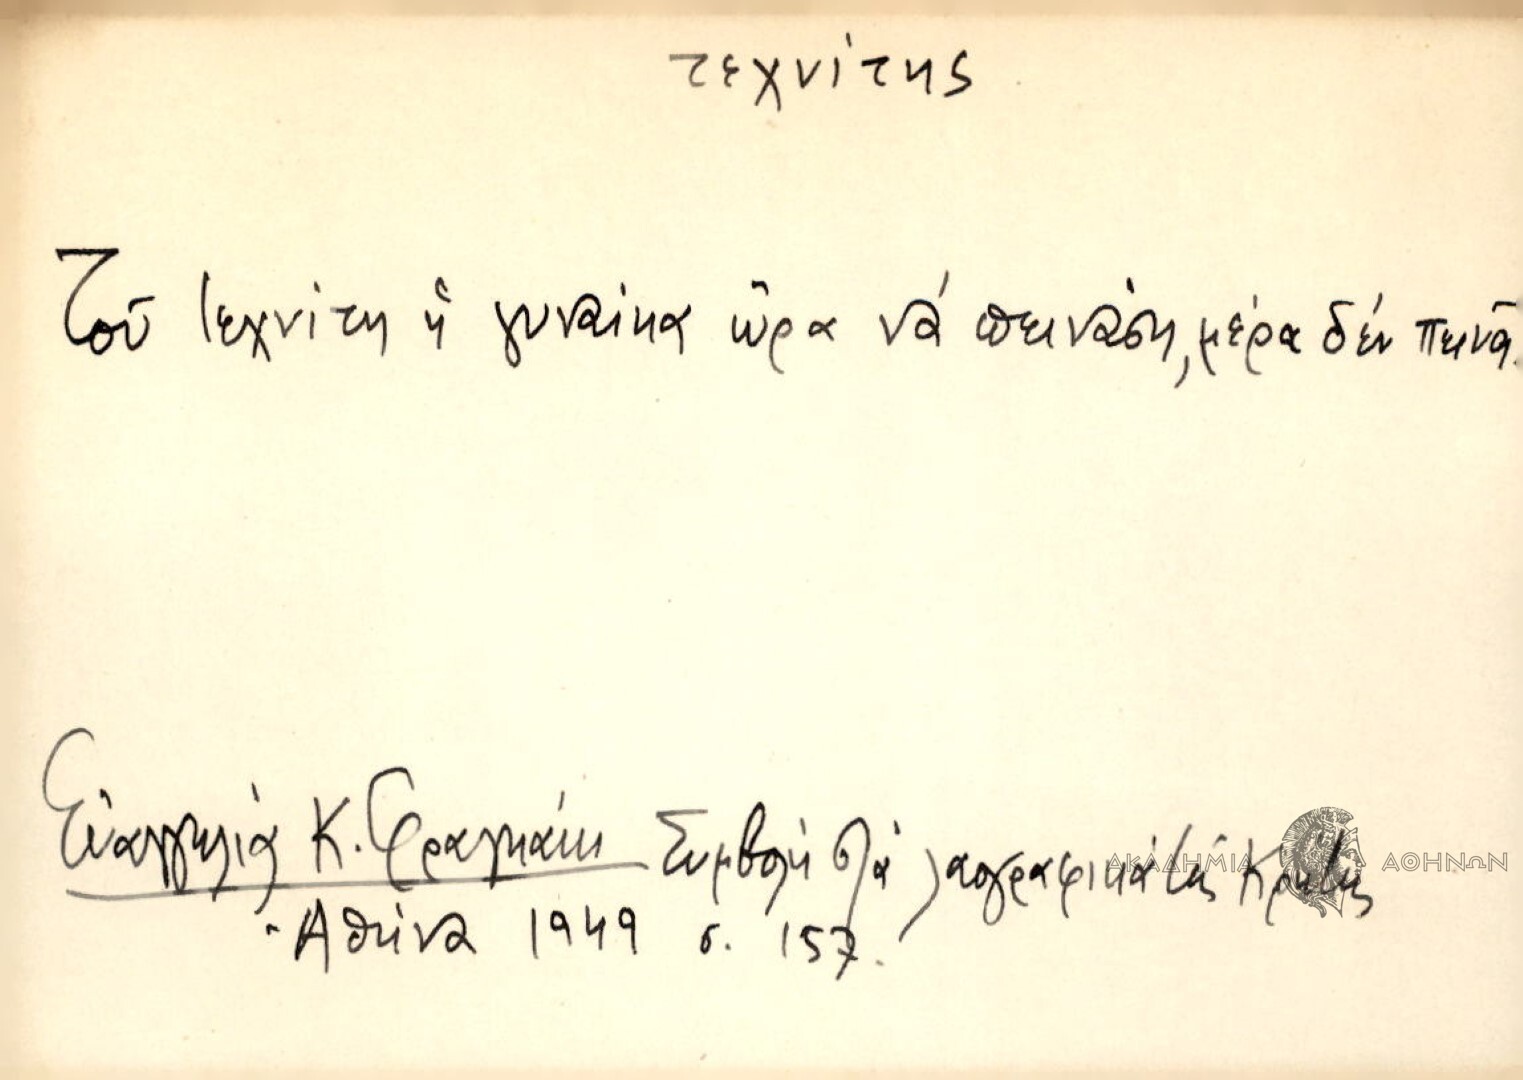 τεχνίτης
Τοῦ τεχνίτη ἡ γυναίκα ὥρα νά πεινάση, μέρα δέν πεινᾶ.
Εὐαγγελία Κ. Φραγκάκι Συμβολή στά λαογραφικά τῆς Κρήτης
Ἀθήνα 1949 σ. 157.
ΑΚΑΔΗΜΙΑ ΑΘΗΝΩΝ